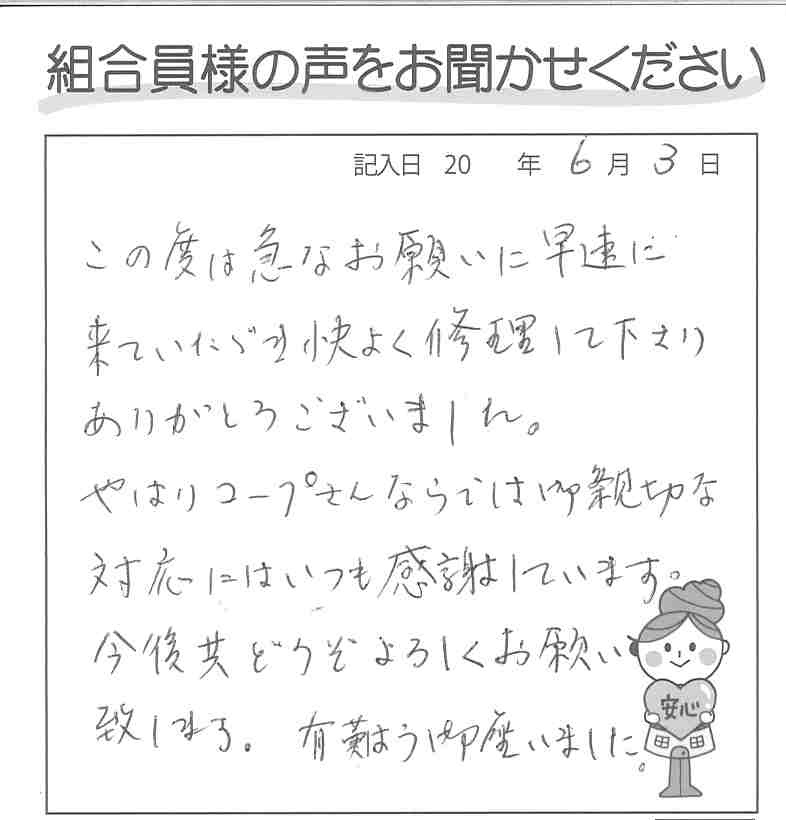 組合員様の声をお聞かせください
記入日 20 年 6 月 3 日
この度は急なお願いに早速に
来ていただき快よく修理して下さり
ありがとうございました。
やはりコープさんならでは御親切な
対応にはいつも感謝しています。
今後共どうぞよろしくお願い
致します。 有難う御座いました。
安心